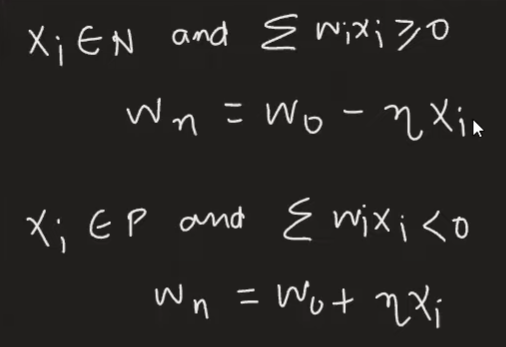 Xi ∈ N and Σ wixi ≥ 0
wn = wo - ηXi
Xi ∈ P and Σ wixi < 0
wn = wo + ηXi